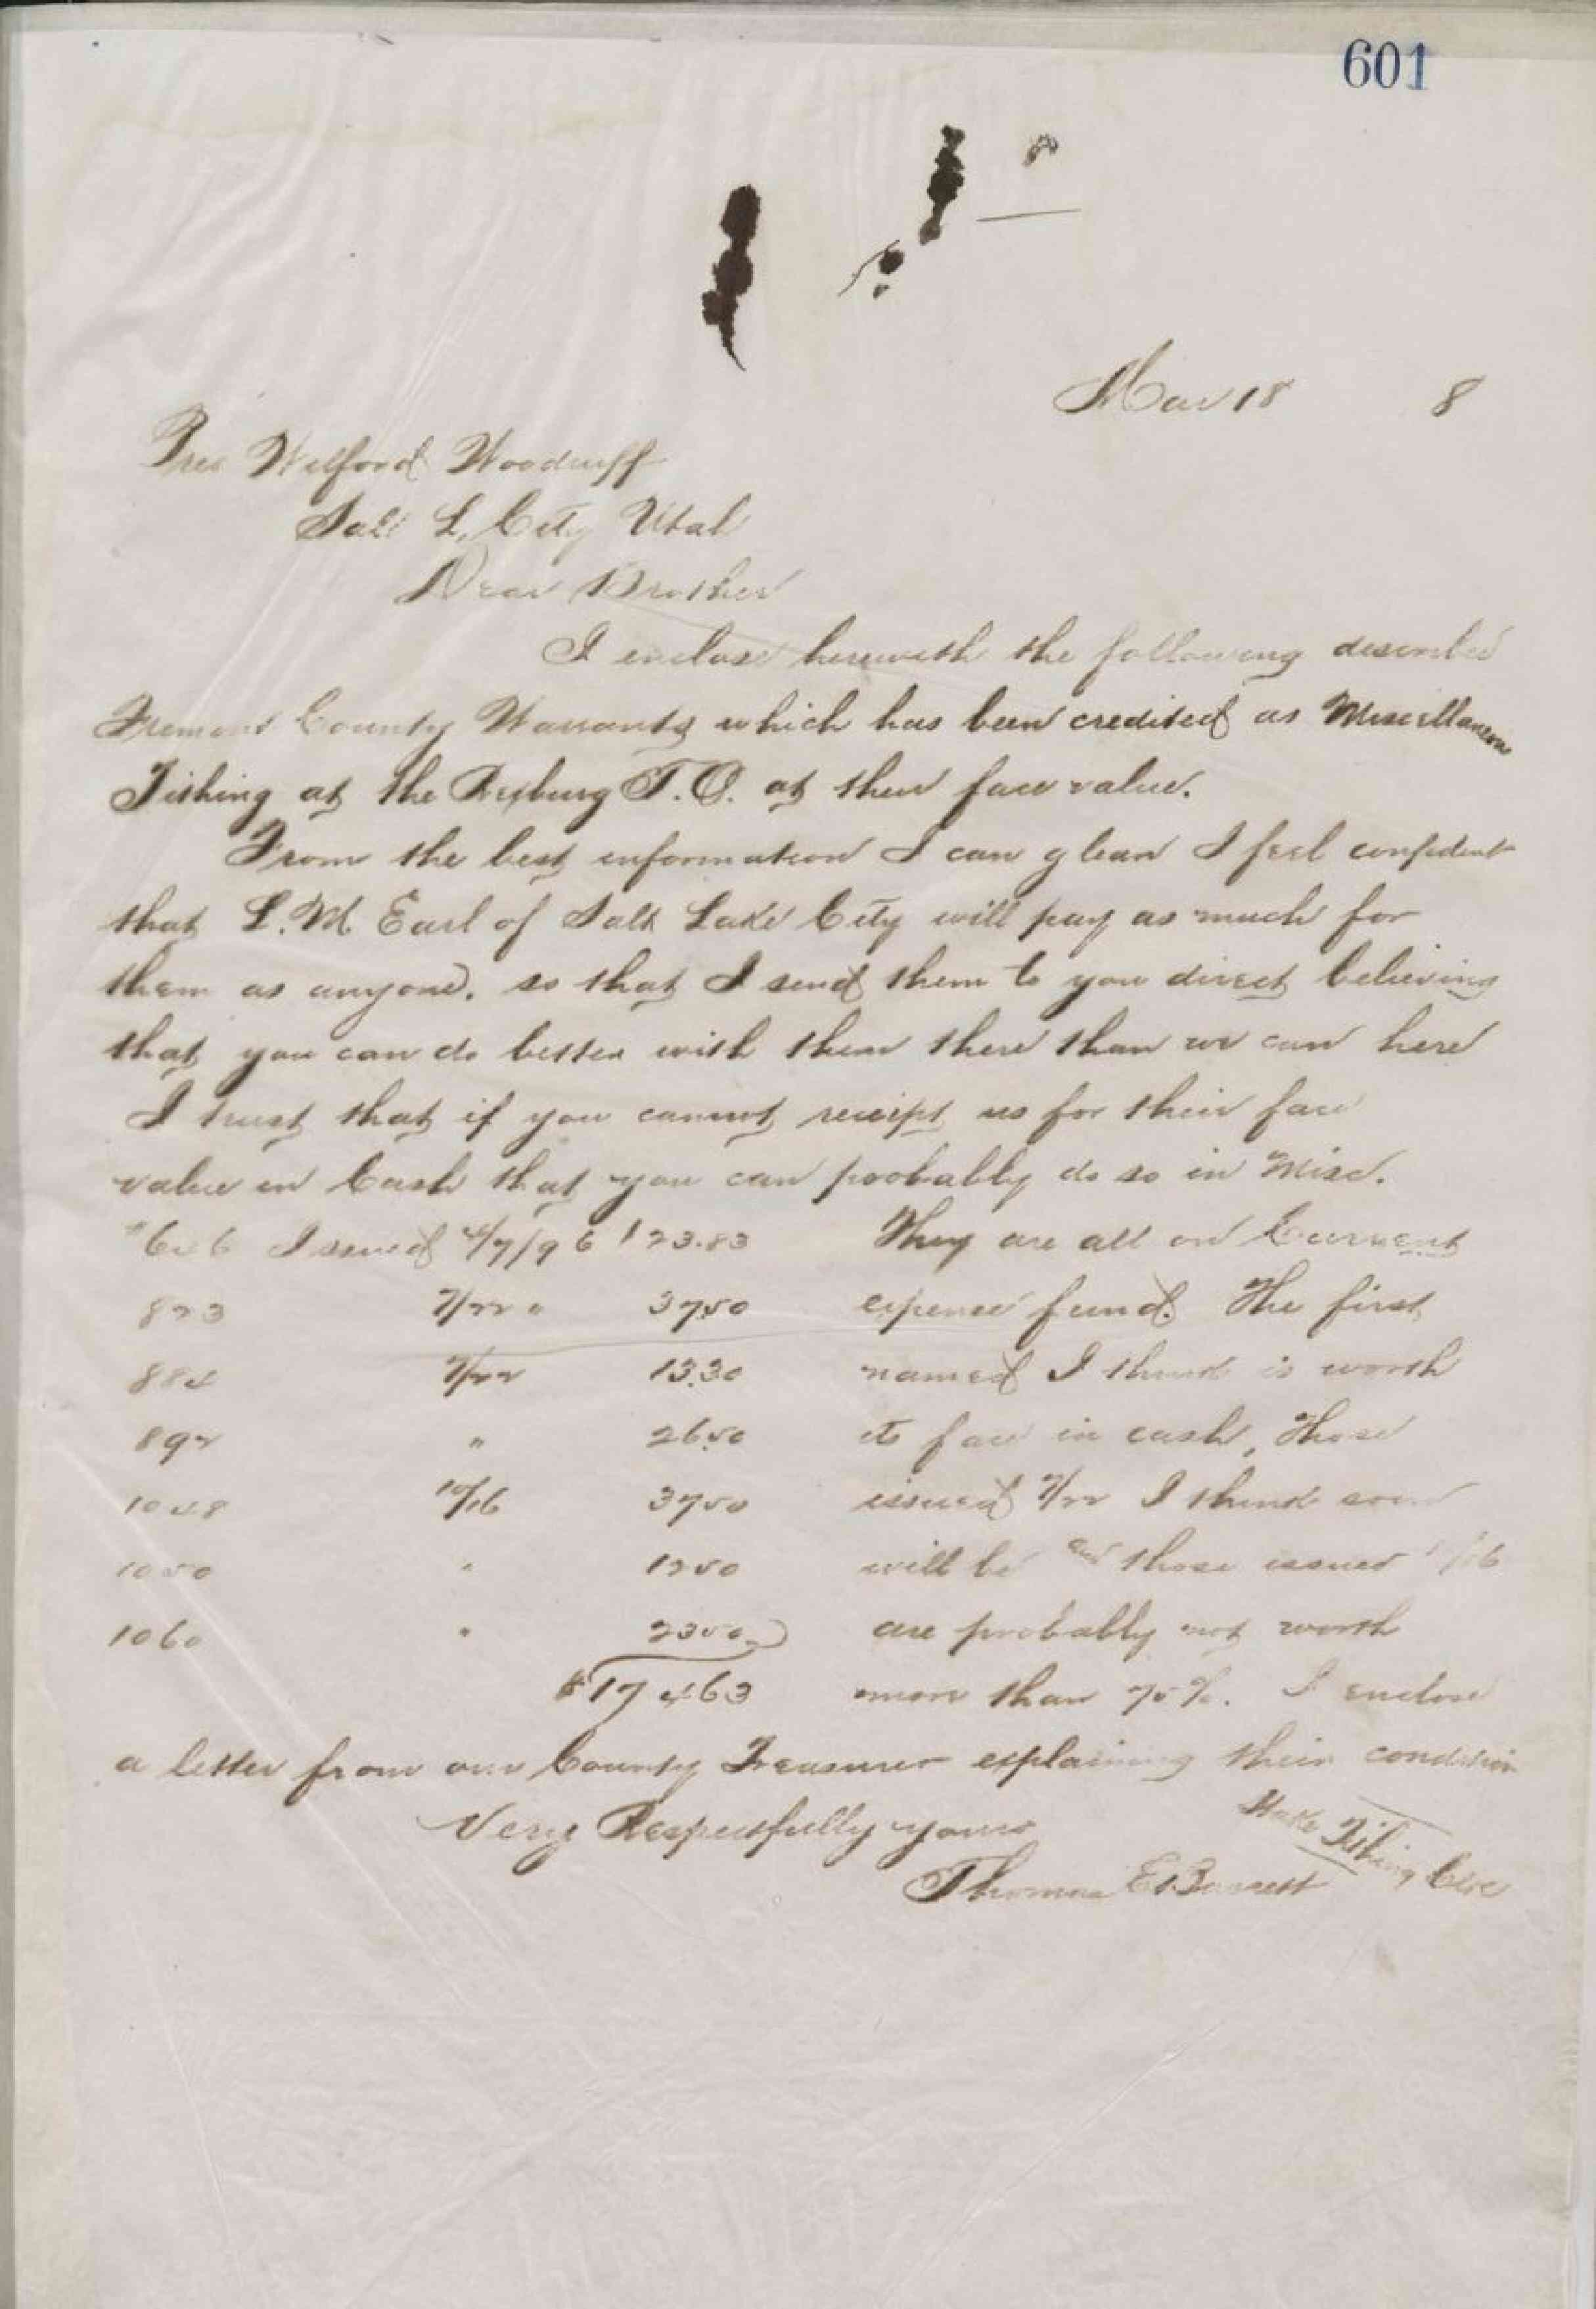 601
Mar 18 8
Pres Wilford Woodruff
Salt L. City Utah
Dear Brother
I enclose herewith the following described
Fremont County Warrants which has been credited as Miscellaneous
Tithing at the Rexburg T.O. at their face value.
From the best information I can glean I feel confident
that L. M. Earl of Salt Lake City will pay as much for
them as anyone. so that I send them to you direct believing
that you can do better with them there than we can here
I trust that if you cannot receipt us for their face
value in Cash that you can probably do so in Misc.
Issued /7/96 $23.83 They are all on Current
823 7/22 " 37.50 expense fund. The first
884 7/22 13.30 named I think is worth
892 " 26.50 its face in cash, Those
1048 10/16 37.50 issued 7/22 I think soon
1050 " 12.50 will be and those issued /16
1060 " 23.50 are probably not worth
$174.63 more than 75%. I enclose
a letter from our County Treasurer explaining their condition
Very Respectfully yours
Thomas E Bassett Stake Tithing Clk